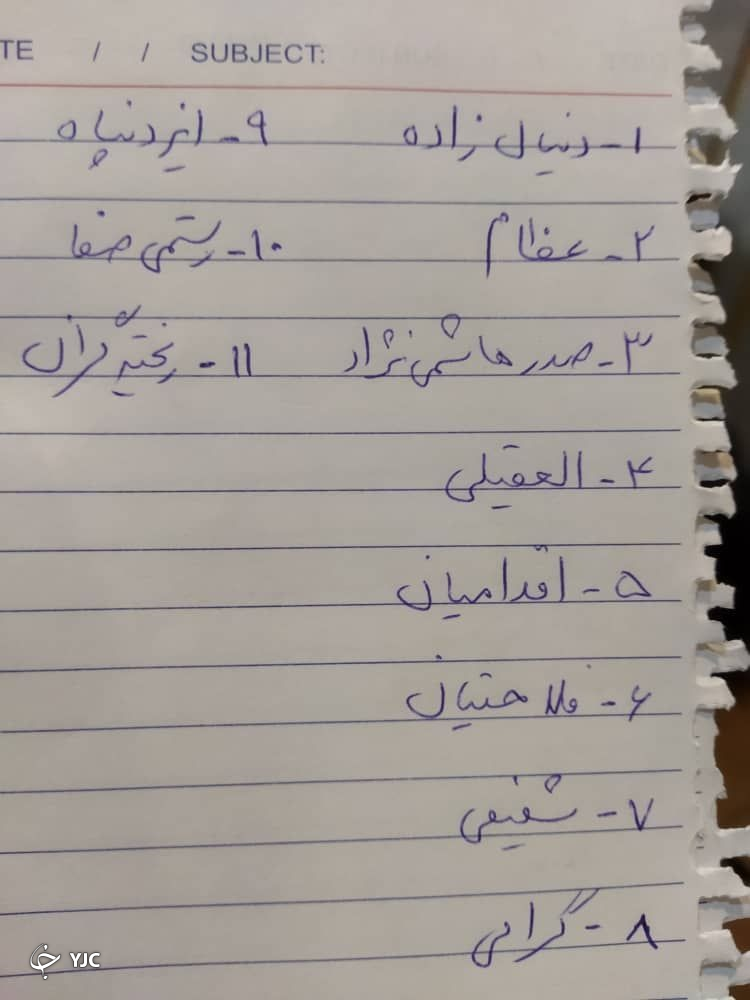 TE / / SUBJECT:
۱- دنیال زاده
۲- عظام
۳- صدرهاشمی نژاد
۴- العقیلی
۵- اقدامیان
۶- فلاحتیان
۷- شفیعی
۸- گرامی
۹- ایزدپناه
۱۰- رستمی صفا
۱۱- ریخته گران
YJC